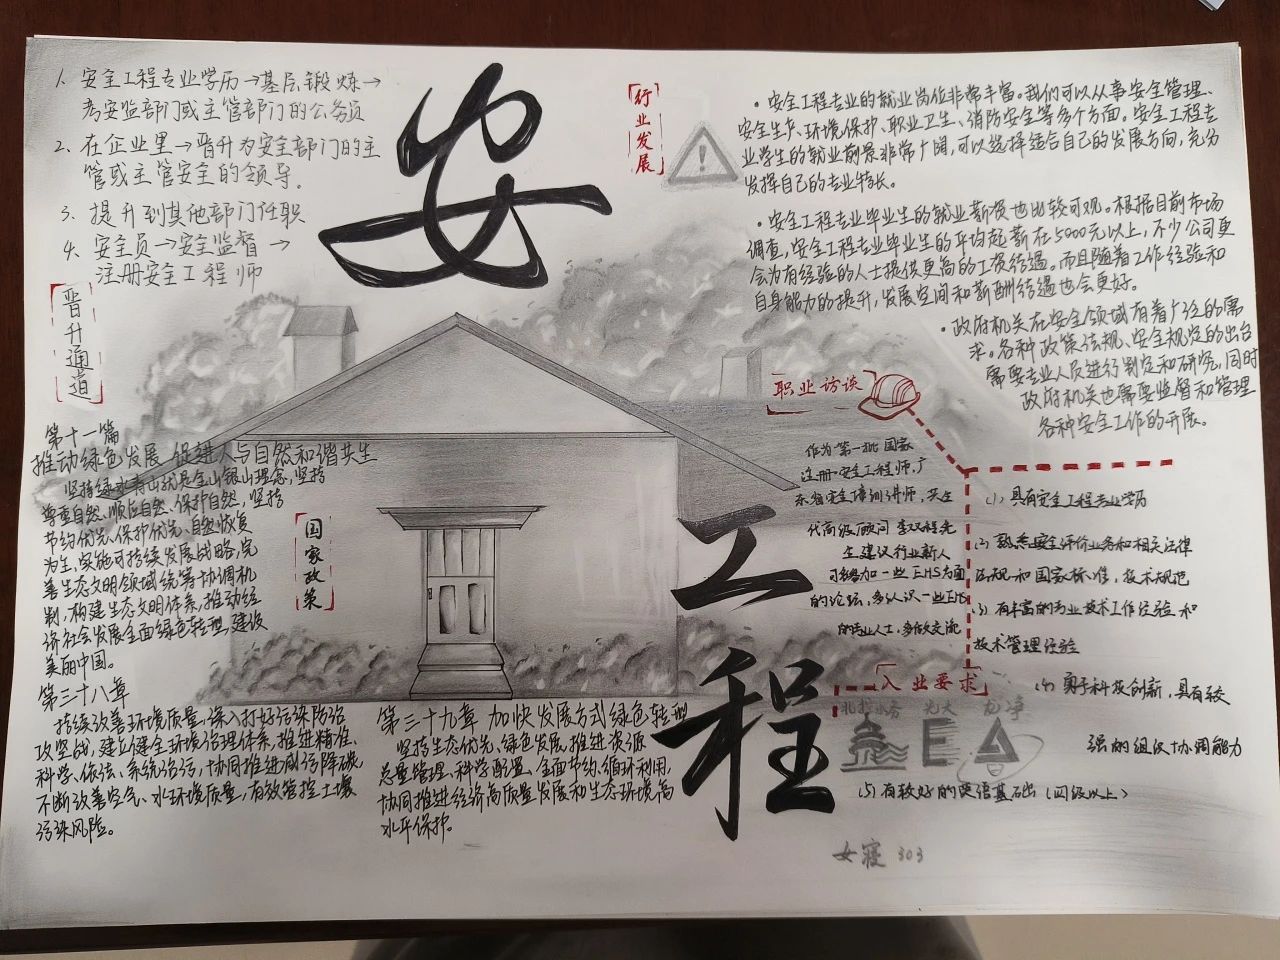 1. 安全工程专业学历→基层锻炼→
考安监部门或主管部门的公务员
2. 在企业里→晋升为安全部门的主
管或主管安全的领导.
3. 提升到其他部门任职
4. 安全员→安全监督→
注册安全工程师
晋升通道
安
工
程
行业发展
• 安全工程专业的就业岗位非常丰富。我们可以从事安全管理、
安全生产、环境保护、职业卫生、消防安全等多个方面。安全工程专
业学生的就业前景非常广阔,可以选择适合自己的发展方向,充分
发挥自己的专业特长。
• 安全工程专业毕业生的就业薪资也比较可观。根据目前市场
调查,安全工程专业毕业生的平均起薪在5000元以上,不少公司更
会为有经验的人士提供更高的工资待遇。而且随着工作经验和
自身能力的提升,发展空间和薪酬待遇也会更好。
• 政府机关在安全领域有着广泛的需
求。各种政策法规、安全规定的出台
需要专业人员进行制定和研究,同时
政府机关也需要监督和管理
各种安全工作的开展。
第十一篇
推动绿色发展 促进人与自然和谐共生
坚持绿水青山就是金山银山理念,坚持
尊重自然、顺应自然、保护自然,坚持
节约优先、保护优先、自然恢复
为主,实施可持续发展战略,完
善生态文明领域统筹协调机
制,构建生态文明体系,推动经
济社会发展全面绿色转型,建设
美丽中国。
国家政策
第三十八章
持续改善环境质量,深入打好污染防治
攻坚战,建立健全环境治理体系,推进精准、
科学、依法、系统治污,协同推进减污降碳,
不断改善空气、水环境质量,有效管控土壤
污染风险。
第三十九章 加快发展方式绿色转型
坚持生态优先、绿色发展,推进资源
总量管理、科学配置、全面节约、循环利用,
协同推进经济高质量发展和生态环境高
水平保护。
职业访谈
作为第一批国家
注册安全工程师,广
东省安全培训讲师,
代高级顾问 李双程先
生建议行业新人
可参加一些EHS方面
的论坛,多认识一些EHS
的专业人士,多做交流
入业要求
(1) 具有安全工程专业学历
(2) 熟悉安全评价业务和相关法律
法规和国家标准,技术规范
(3) 有丰富的专业技术工作经验和
技术管理经验
(4) 勇于科技创新,具有较
强的组织协调能力
(5) 有较好的英语基础(四级以上)
北控水务 光大 龙净
女寝 303